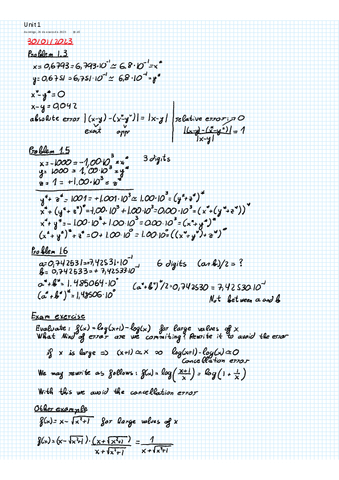 Unit 1
30/01/2023
Problem 1.3
x=0,6793=6,793·10⁻¹ ≃ 6,8·10⁻¹=x*
y=0,6751=6,751·10⁻¹ ≃ 6,8·10⁻¹=y*
x*-y*=0
x-y=0,042
absolute error |(x-y)-(x*-y*)| = |x-y| relative error
exact appr |(x-y)-(x*-y*)| / |x-y| = 1
Problem 1.5
x=-1000=-1,00·10³=x* 3 digits
y=1000=1,00·10³=y*
z=1=+1,00·10⁰=z*
y*+z*=1001=+1,001·10³≃1,00·10³=(y*+z*)*
x*+(y*+z*)*=-1,00·10³+1,00·10³=0,00·10⁰=(x*+(y*+z*)*)*
x*+y*=-1,00·10³+1,00·10³=0,00·10⁰=(x*+y*)*
(x*+y*)*+z*=0+1,00·10⁰=1,00·10⁰=((x*+y*)*+z*)*
Problem 1.6
a=0,742531=7,42531·10⁻¹ 6 digits (a+b)/2=?
b=0,742533=+7,42533·10⁻¹
a*+b*=1,485064·10⁰
(a*+b*)*=1,48506·10⁰ (a*+b*)*/2=0,742530=7,42530·10⁻¹
Not between a and b
Exam exercise
Evaluate: f(x)=log(x+1)-log(x) for large values of x
What kind of error are we commiting? Rewrite it to avoid the error
if x is large ⇒ (x+1)≃x ⇒ log(x+1)-log(x)≃0
Cancellation error
We may rewrite as follows: f(x)=log((x+1)/x)=log(1+1/x)
With this we avoid the cancellation error
Other example
f(x)=x-√(x²+1) for large values of x
f(x)=(x-√(x²+1))·(x+√(x²+1))/(x+√(x²+1))=1/(x+√(x²+1))